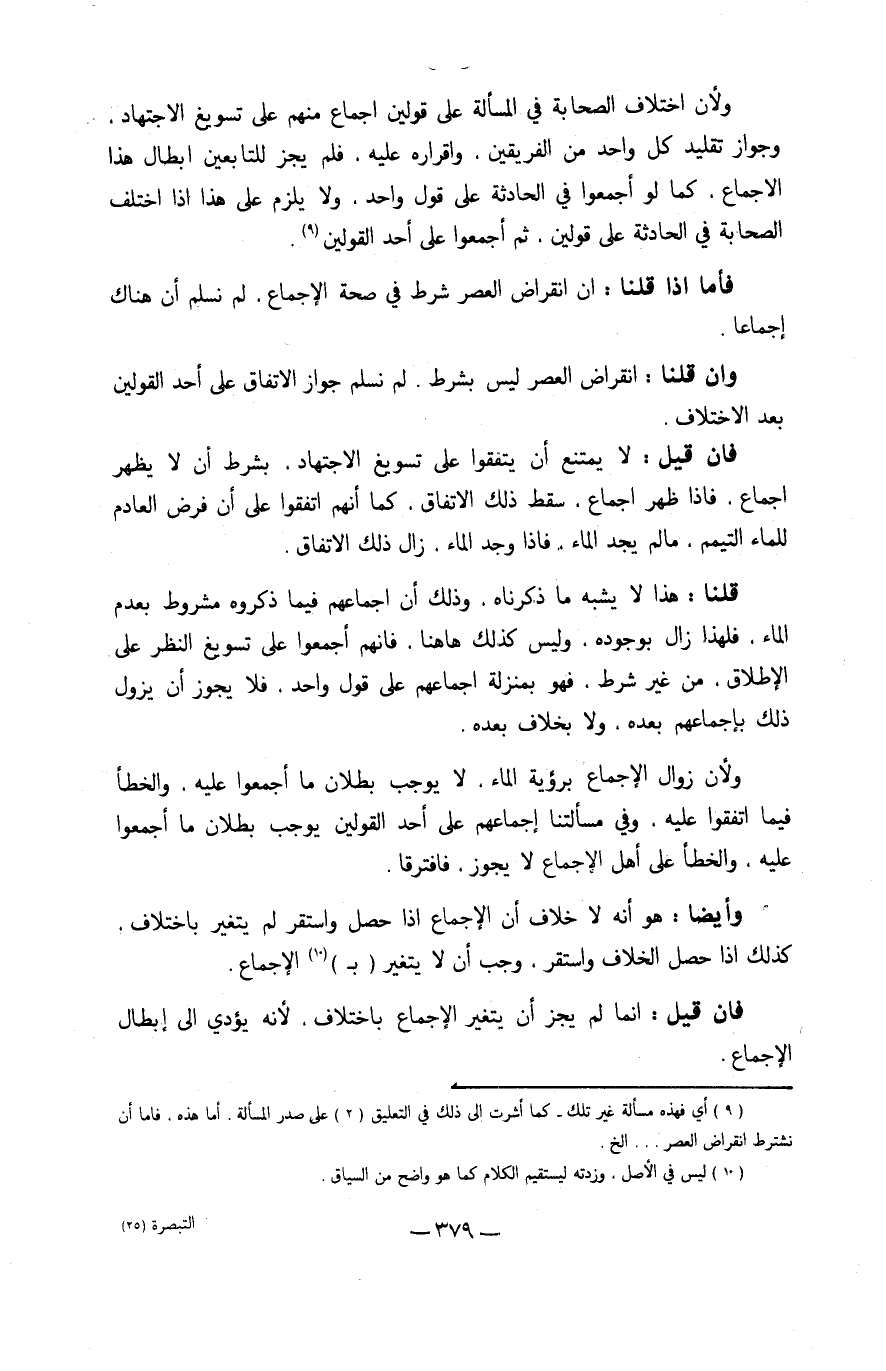 ولأن اختلاف الصحابة في المسألة على قولين اجماع منهم على تسويغ الاجتهاد ،
وجواز تقليد كل واحد من الفريقين ، واقراره عليه ، فلم يجز للتابعين ابطال هذا
الاجماع ، كما لو أجمعوا في الحادثة على قول واحد ، ولا يلزم على هذا اذا اختلف
الصحابة في الحادثة على قولين ، ثم أجمعوا على أحد القولين (٩) .
فأما اذا قلنا : ان انقراض العصر شرط في صحة الإجماع ، لم نسلم أن هناك
إجماعا .
وان قلنا : انقراض العصر ليس بشرط . لم نسلم جواز الاتفاق على أحد القولين
بعد الاختلاف .
فان قيل : لا يمتنع أن يتفقوا على تسويغ الاجتهاد ، بشرط أن لا يظهر
اجماع ، فاذا ظهر اجماع ، سقط ذلك الاتفاق ، كما أنهم اتفقوا على أن فرض العادم
للماء التيمم ، مالم يجد الماء ، فاذا وجد الماء ، زال ذلك الاتفاق .
قلنا : هذا لا يشبه ما ذكرناه ، وذلك أن اجماعهم فيما ذكروه مشروط بعدم
الماء ، فلهذا زال بوجوده ، وليس كذلك هاهنا ، فانهم أجمعوا على تسويغ النظر على
الإطلاق ، من غير شرط ، فهو بمنزلة اجماعهم على قول واحد ، فلا يجوز أن يزول
ذلك بإجماعهم بعده ، ولا بخلاف بعده .
ولأن زوال الإجماع برؤية الماء ، لا يوجب بطلان ما أجمعوا عليه ، والخطأ
فيما اتفقوا عليه ، وفي مسألتنا إجماعهم على أحد القولين يوجب بطلان ما أجمعوا
عليه ، والخطأ على أهل الإجماع لا يجوز ، فافترقا .
وأيضا : هو أنه لا خلاف أن الإجماع اذا حصل واستقر لم يتغير باختلاف ،
كذلك اذا حصل الخلاف واستقر ، وجب أن لا يتغير ( بـ )(١٠) الإجماع .
فان قيل : انما لم يجز أن يتغير الإجماع باختلاف ، لأنه يؤدي الى إبطال
الإجماع .
( ٩ ) أي فهذه مسألة غير تلك ـ كما أشرت إلى ذلك في التعليق ( ٢ ) على صدر المسألة . أما هذه ، فاما أن
نشترط انقراض العصر . . . الخ .
( ١٠ ) ليس في الأصل ، وزدته ليستقيم الكلام كما هو واضح من السياق .
التبصرة (٢٥)
— ٣٧٩ —